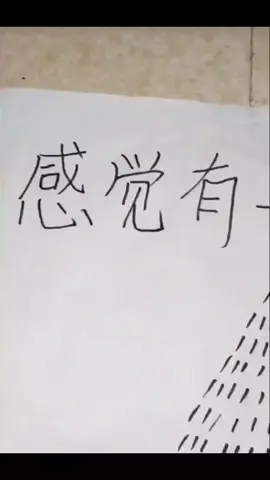 感觉有